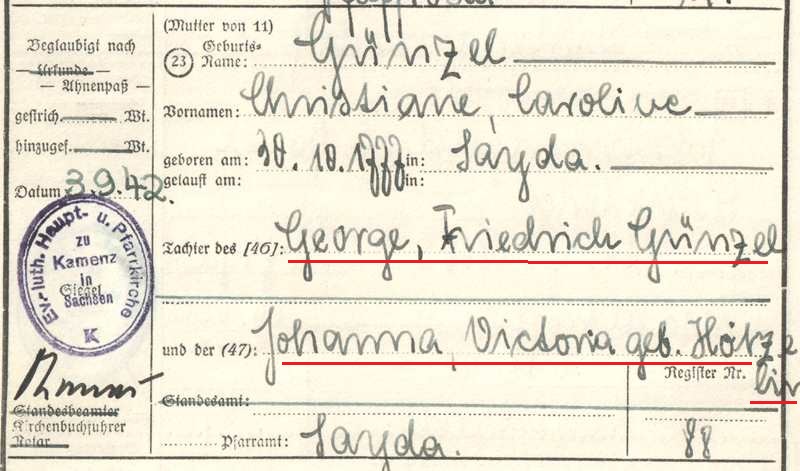 (Mutter von 11)
Beglaubigt nach
Urkunde
— Ahnenpaß —
gestrich. Wt.
hinzugef. Wt.
Datum 3.9.42.
(23) Geburts-
Name: Günzel
Vornamen: Christiane, Caroline
geboren am: 30.10.1777 in: Sayda.
getauft am: in:
Tochter des [46]: George, Friedrich Günzel
Ev.-luth. Haupt- u. Pfarrkirche
zu
Kamenz
in
Siegel
Sachsen
K
und der (47): Johanna, Victoria geb. Hötze
lin
Register Nr.
88
Standesbeamter
Kirchenbuchführer
Notar
Standesamt:
Pfarramt: Sayda.